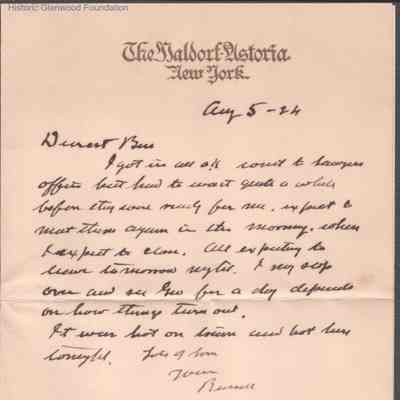 Historic Glenwood Foundation
The Waldorf-Astoria
New York.
Aug 5-24
Dearest Bess
I got in all o.k. went to lawyers
office but had to wait quite a while
before they were ready for me. expect to
meet them again in the morning. when
I expect to close. All expecting to
leave tomorrow night. I may stop
over and see Geo for a day depends
on how things turn out.
It was hot on train and hot here
tonight. Lots of love
Yours
Russell